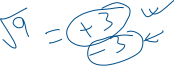 √9 = +3
-3